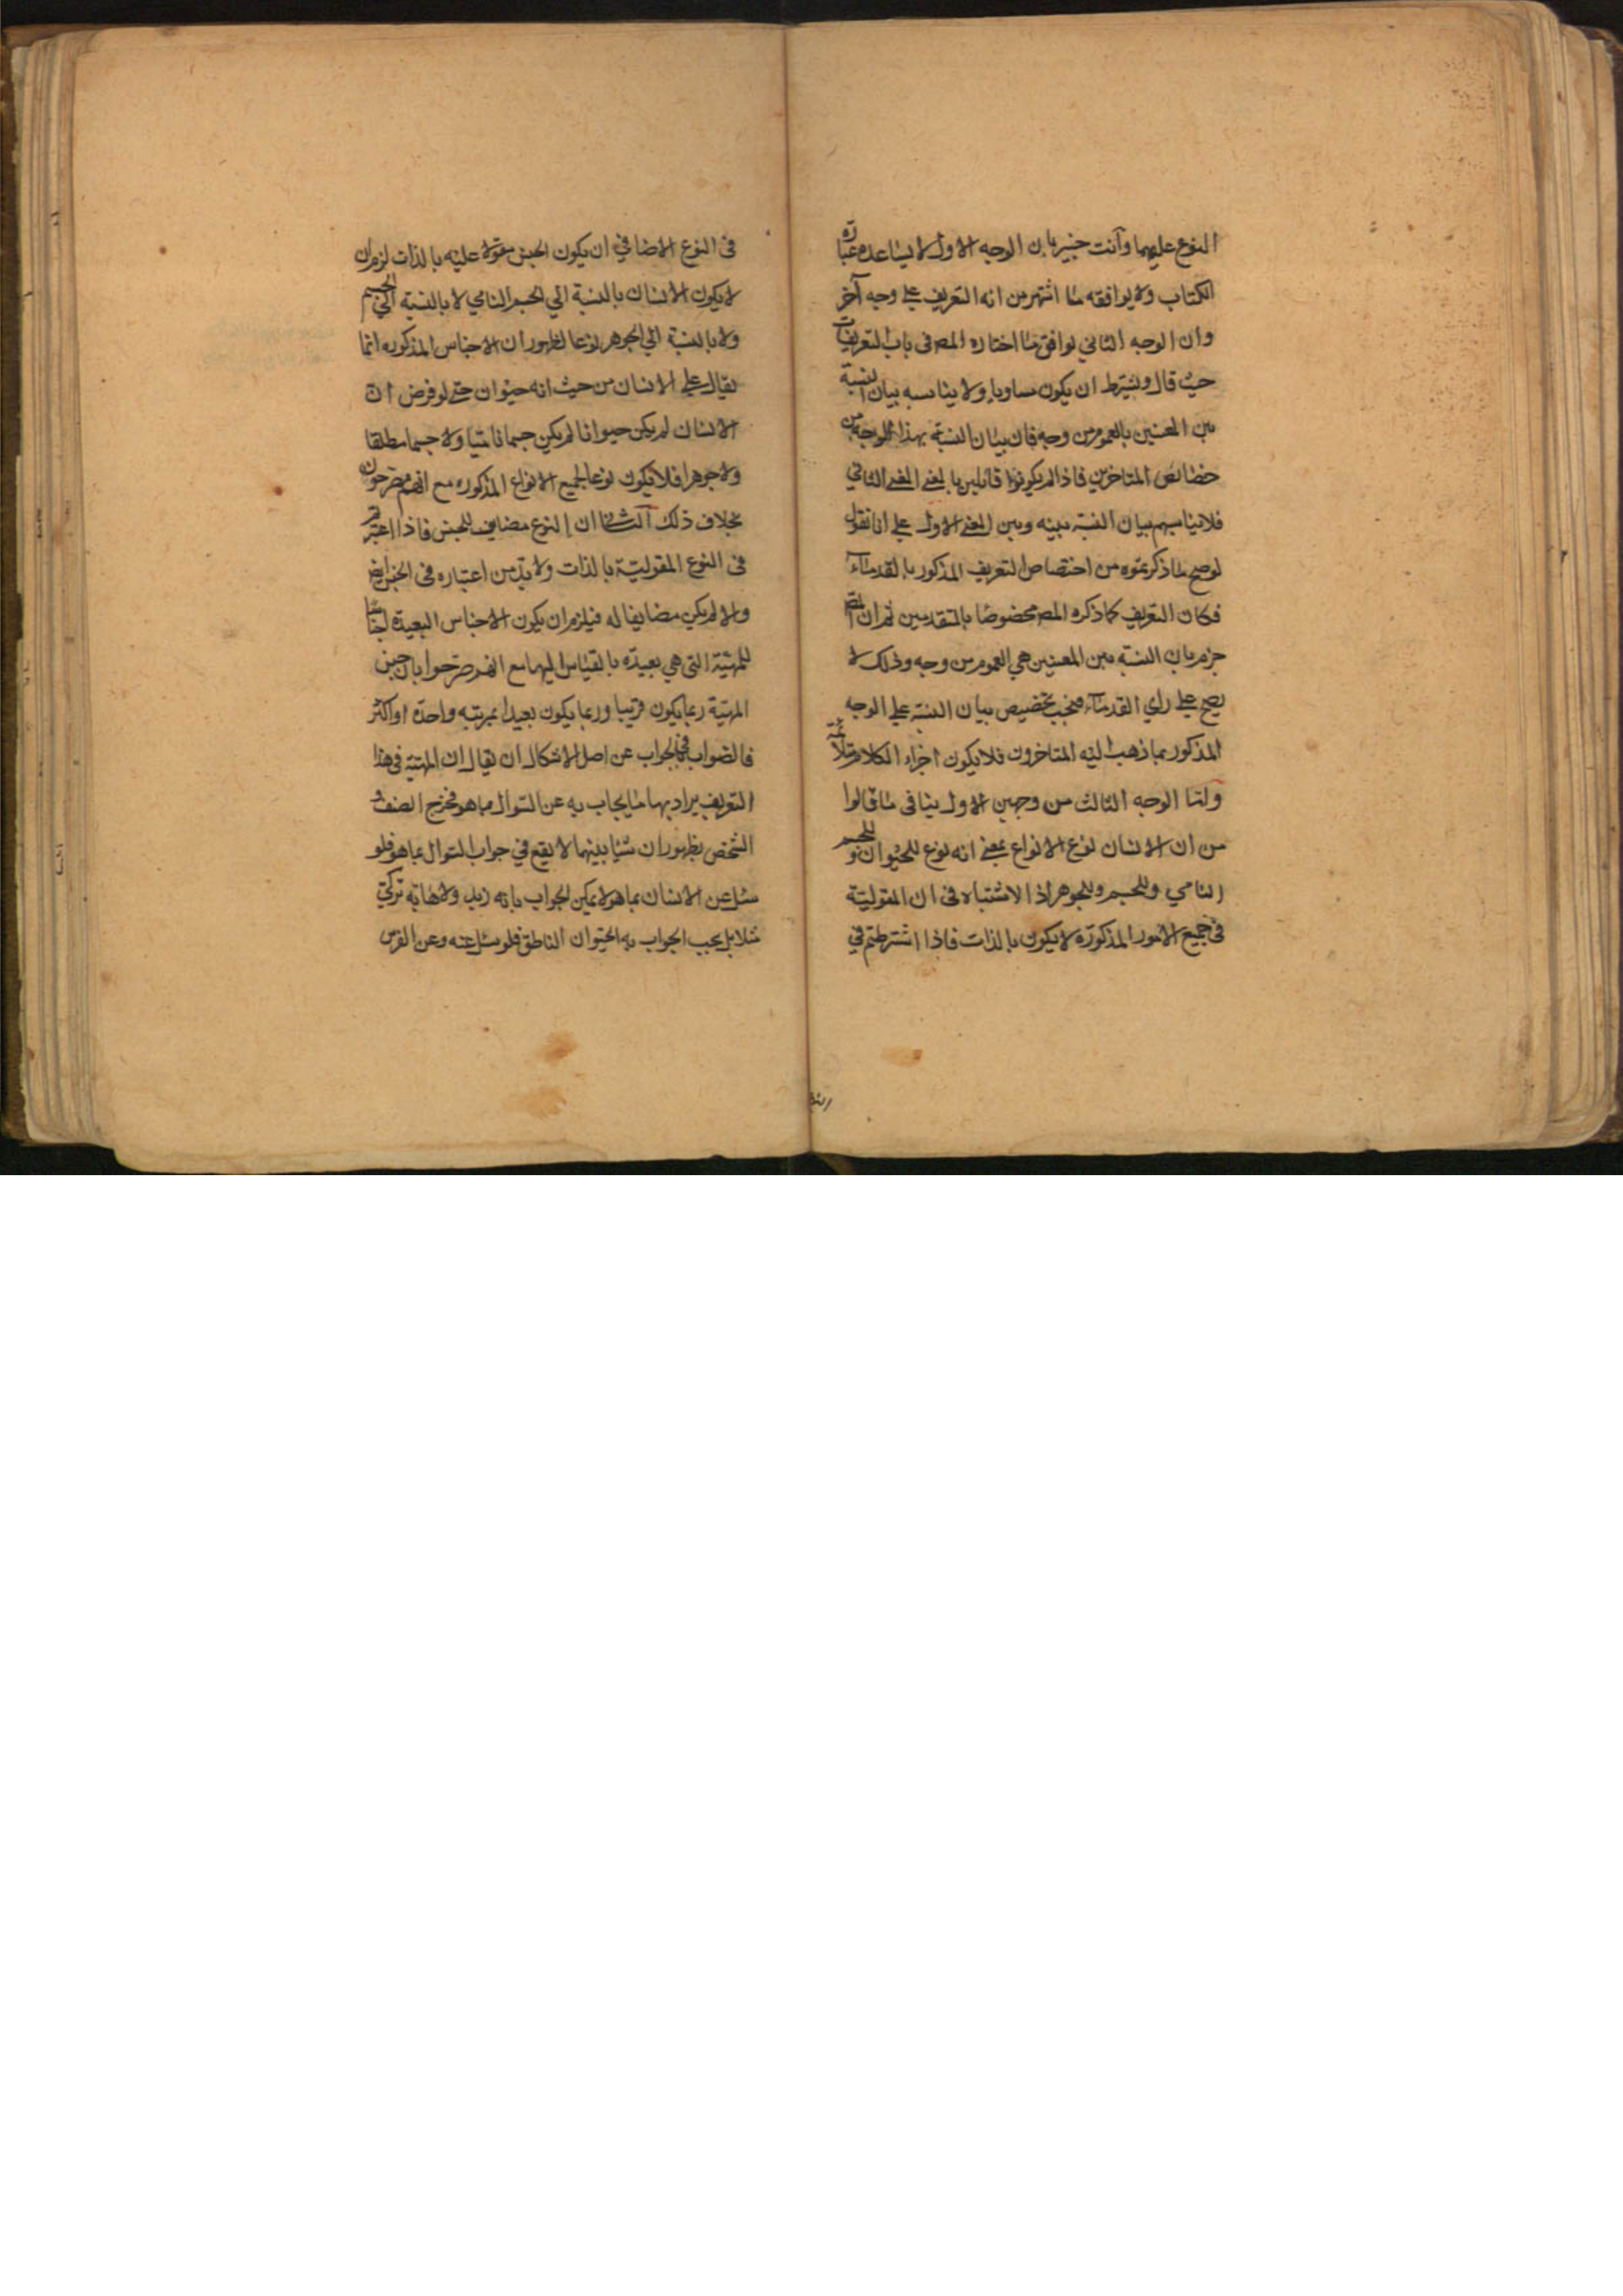 النوع عليهما وأنت خبير بان الوجه الاول لا يساعده عبارة
الكتاب ولا يوافقه ما اشتهر من انه التعريف على وجه آخر
وان الوجه الثاني يوافق ما اختاره المص فى باب التعريفات
حيث قال ويشترط ان يكون مساويا ولا يناسبه بيان النسبة
بين المعنيين بالعموم من وجه فان بيان النسبة بهذا الوجه من
خصائص المتاخرين فاذا لم يكونوا قائلين بالمعنى الثاني
فلا يناسبهم بيان النسبة بينه وبين المعنى الاول على انا نقول
لو صح ما ذكرتموه من اختصاص التعريف المذكور بالقدماء
فكان التعريف كما ذكره المص مخصوصا بالمتقدمين ثم ان المص
جزم بان النسبة بين المعنيين هي العموم من وجه وذلك لا
يصح على راي القدماء فيجب تخصيص بيان النسبة على الوجه
المذكور بما ذهب اليه المتاخرون فلا يكون اجزاء الكلام
واما الوجه الثالث من وجهين الاول ينافى ما قالوا
من ان الانسان نوع الانواع بمعنى انه نوع للحيوان وللجسم
النامي وللجسم وللجوهر اذ لا اشتباه فى ان المقولية
فى جميع الامور المذكورة لا يكون بالذات فاذا اشترطتم في
فى النوع الاضافي ان يكون الجنس مقولا عليه بالذات لزم ان
لا يكون الانسان بالنسبة الي الجسم النامي لا بالنسبة الي الجسم
ولا بالنسبة الي الجوهر نوعا لظهور ان الاجناس المذكورة انما
يقال على الانسان من حيث انه حيوان حتى لو فرض ان
الانسان لم يكن حيوانا لم يكن جسما ناميا ولا جسما مطلقا
ولا جوهرا فلا يكون نوعا لجميع الانواع المذكورة مع انهم مصرحون
بخلاف ذلك الثاني ان النوع مضايف للجنس فاذا اعتبرتم
فى النوع المقولية بالذات ولا بد من اعتباره فى الجنس ايض
والا لم يكن مضايفا له فيلزم ان يكون الاجناس البعيدة اجناسا
للمهية التى هي بعيدة بالقياس اليها مع انهم صرحوا بان جنس
المهية ربما يكون قريبا وربما يكون بعيدا بمرتبة واحدة او اكثر
فالصواب فى الجواب عن اصل الاشكال ان يقال ان المهية فى هذا
التعريف يراد بها ما يجاب به عن السوال بما هو فخرج الصنف و
الشخص بظهور ان شيئا بينهما لا يقع في جواب السوال بما هو فلو
سئل عن الانسان بما هو لا يمكن الجواب بانه زيد ولا بانه تركي
مثلا بل يجب الجواب به الحيوان الناطق فلو سئل عنه وعن الفرس